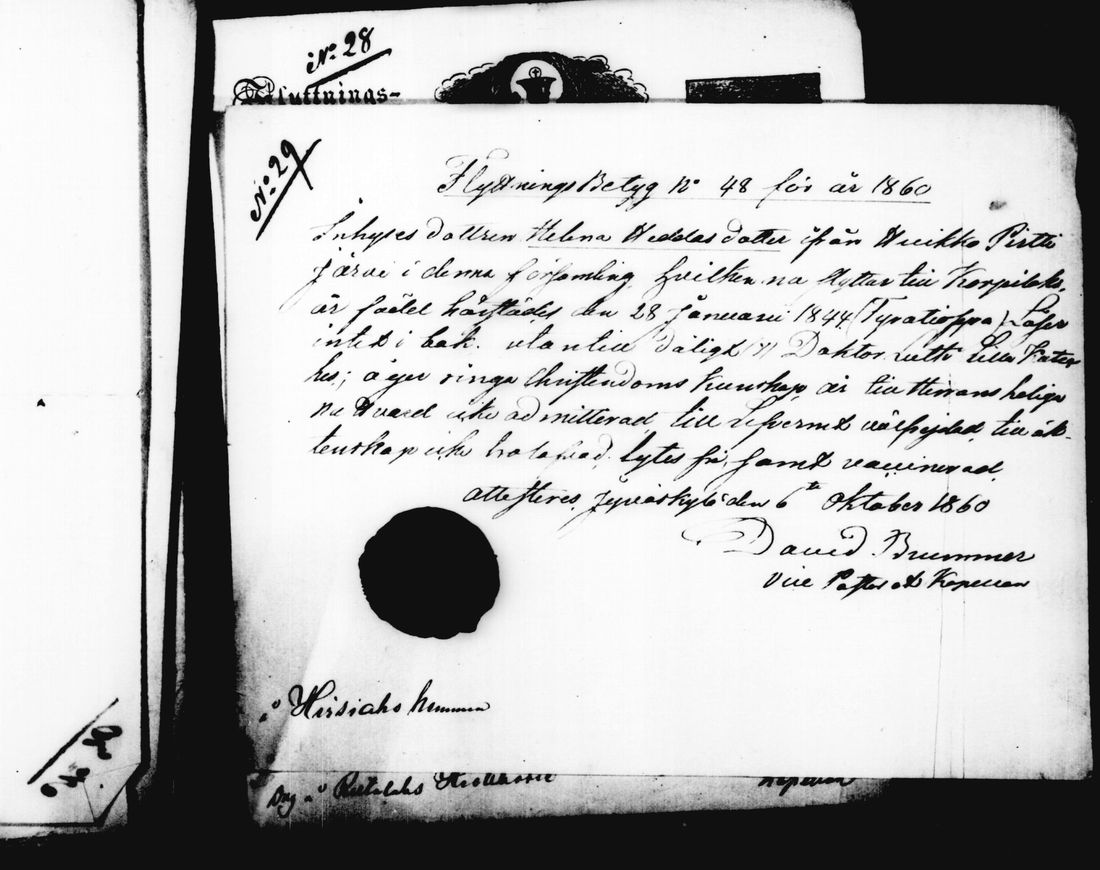 No. 28
Flyttnings-
No. 29
Flyttnings Betyg No 48 för år 1860
Inhyses dottren Helena Heddas dotter ifrån Huikko Pirtti
järvi i denna församling, hvilken nu flyttar till Korpilaks,
är född härstädes den 28 Januari 1844 Läser
intet i bok. utantill dåligt Doktor Luth: Lilla Kateches;
äger ringa Christendoms kunskap är till Herrans heliga
Nattvard icke admitterad, till Lefvernet välfrejdad, till äk-
tenskap icke lytes fri, samt vaccinerad,
attesteres, Jyväskylä den 6te Oktober 1860
David Brummer
Vice Pastor Kapellan
Hirsiaho
Kapellan